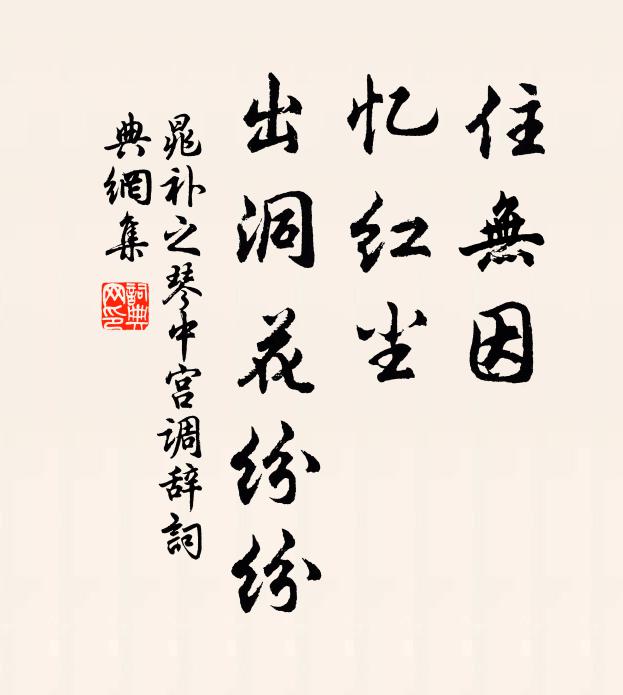 住無因
忆红尘
出洞花纷纷
晁补之琴中宫调辞詞
典網集
詞典网印